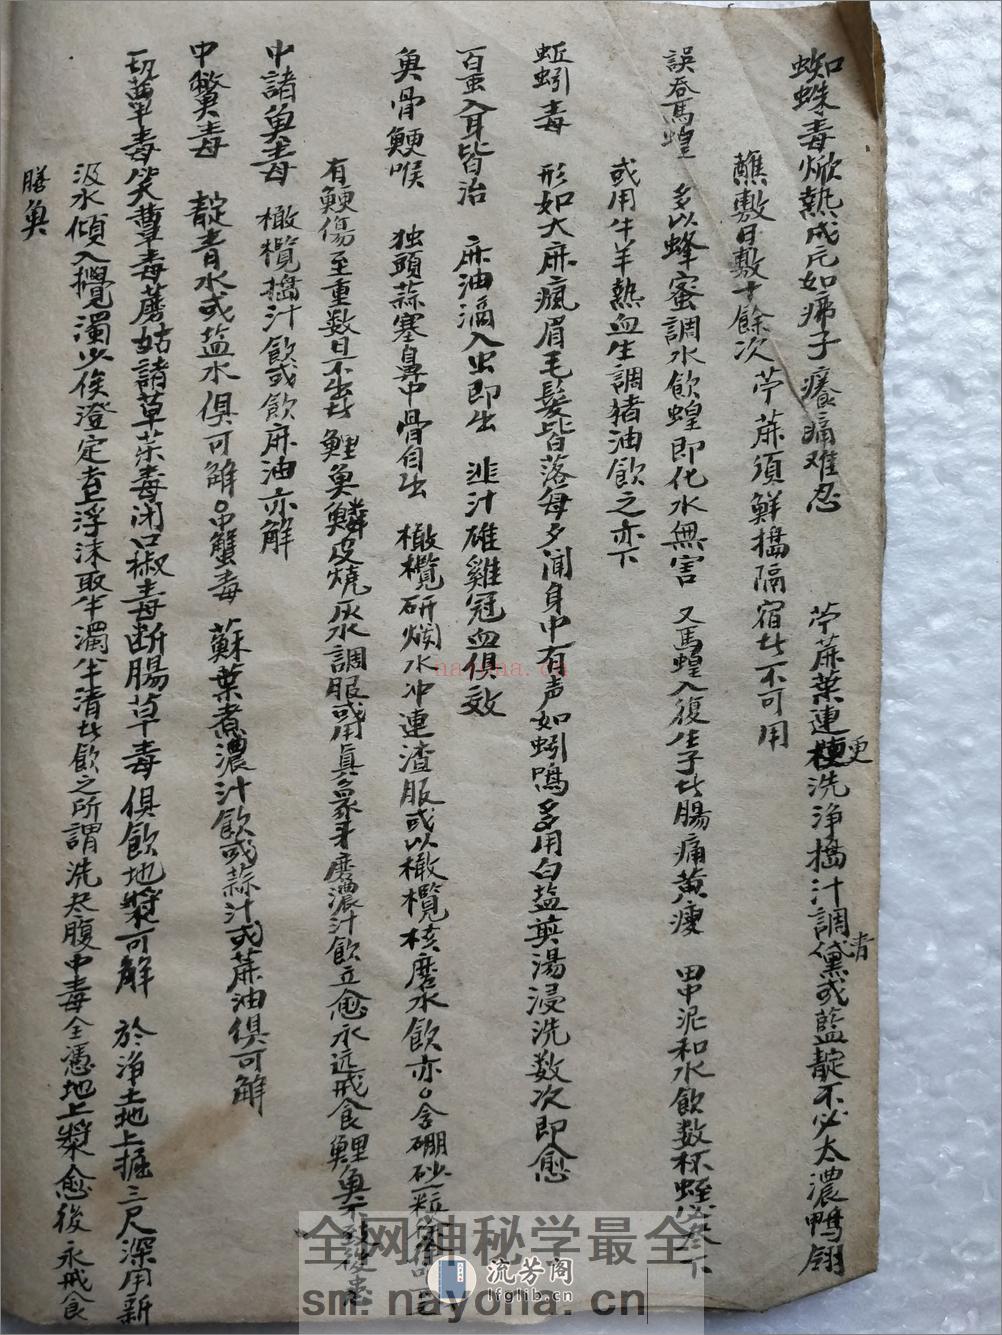 蜘蛛毒焮熱成片如痱子癢痛难忍　苧蔴葉連梗洗淨擣汁調青黛或藍靛不必太濃鴨翎
蘸敷日敷十餘次　苧蔴須鮮擣隔宿者不可用
誤吞馬蝗　多以蜂蜜調水飲蝗即化水無害　又馬蝗入復生子者腸痛黄瘦　田中泥和水飲数杯蛭必尽下
或用牛羊熱血生調猪油飲之亦下
蚯蚓毒　形如大麻瘋眉毛髮皆落每夕闻身中有声如蚓鳴多用白盐煎湯浸洗数次即愈
百虫入耳皆治　麻油滴入虫即出　韭汁雄雞冠血俱效
魚骨鯁喉　独頭蒜塞鼻中骨自出　橄欖研爛水冲連渣服或以橄欖核磨水飲亦。含硼砂一粒
有鯁傷至重数日不出者　鯉魚鱗皮燒灰水調服或用真象牙磨濃汁飲立愈永远戒食鯉魚不
中諸魚毒　橄欖擣汁飲或飲麻油亦解
中鱉毒　靛青水或盐水俱可解。中蟹毒　蘇葉煮濃汁飲或蒜汁或蔴油俱可解
一切蕈毒笑蕈毒蘑姑諸草菜毒闭口椒毒断腸草毒俱飲地漿可解　於净土地上掘三尺深用新
汲水傾入攪濁少俟澄定去上浮沫取半濁半清者飲之所謂洗尽腹中毒全憑地上漿愈後永戒食
膳魚
全网神秘学最全
流芳阁
lfglib.cn
sm.nayona.cn
nayona.cn